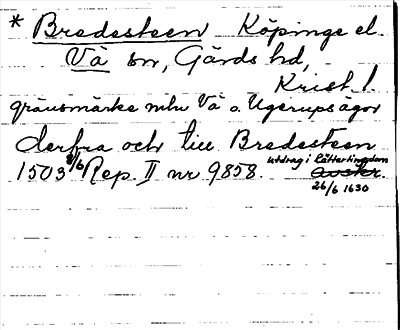 * Bredesteen Köpinge el.
Vä sn, Gärds hd,
Krist. l.
gränsmärke mln Vä o. Ugerups ägor
derfra och till Bredesteen
1503 8/6 Rep. II nr 9858. utdrag i Rättartingdom
avskr.
26/6 1630